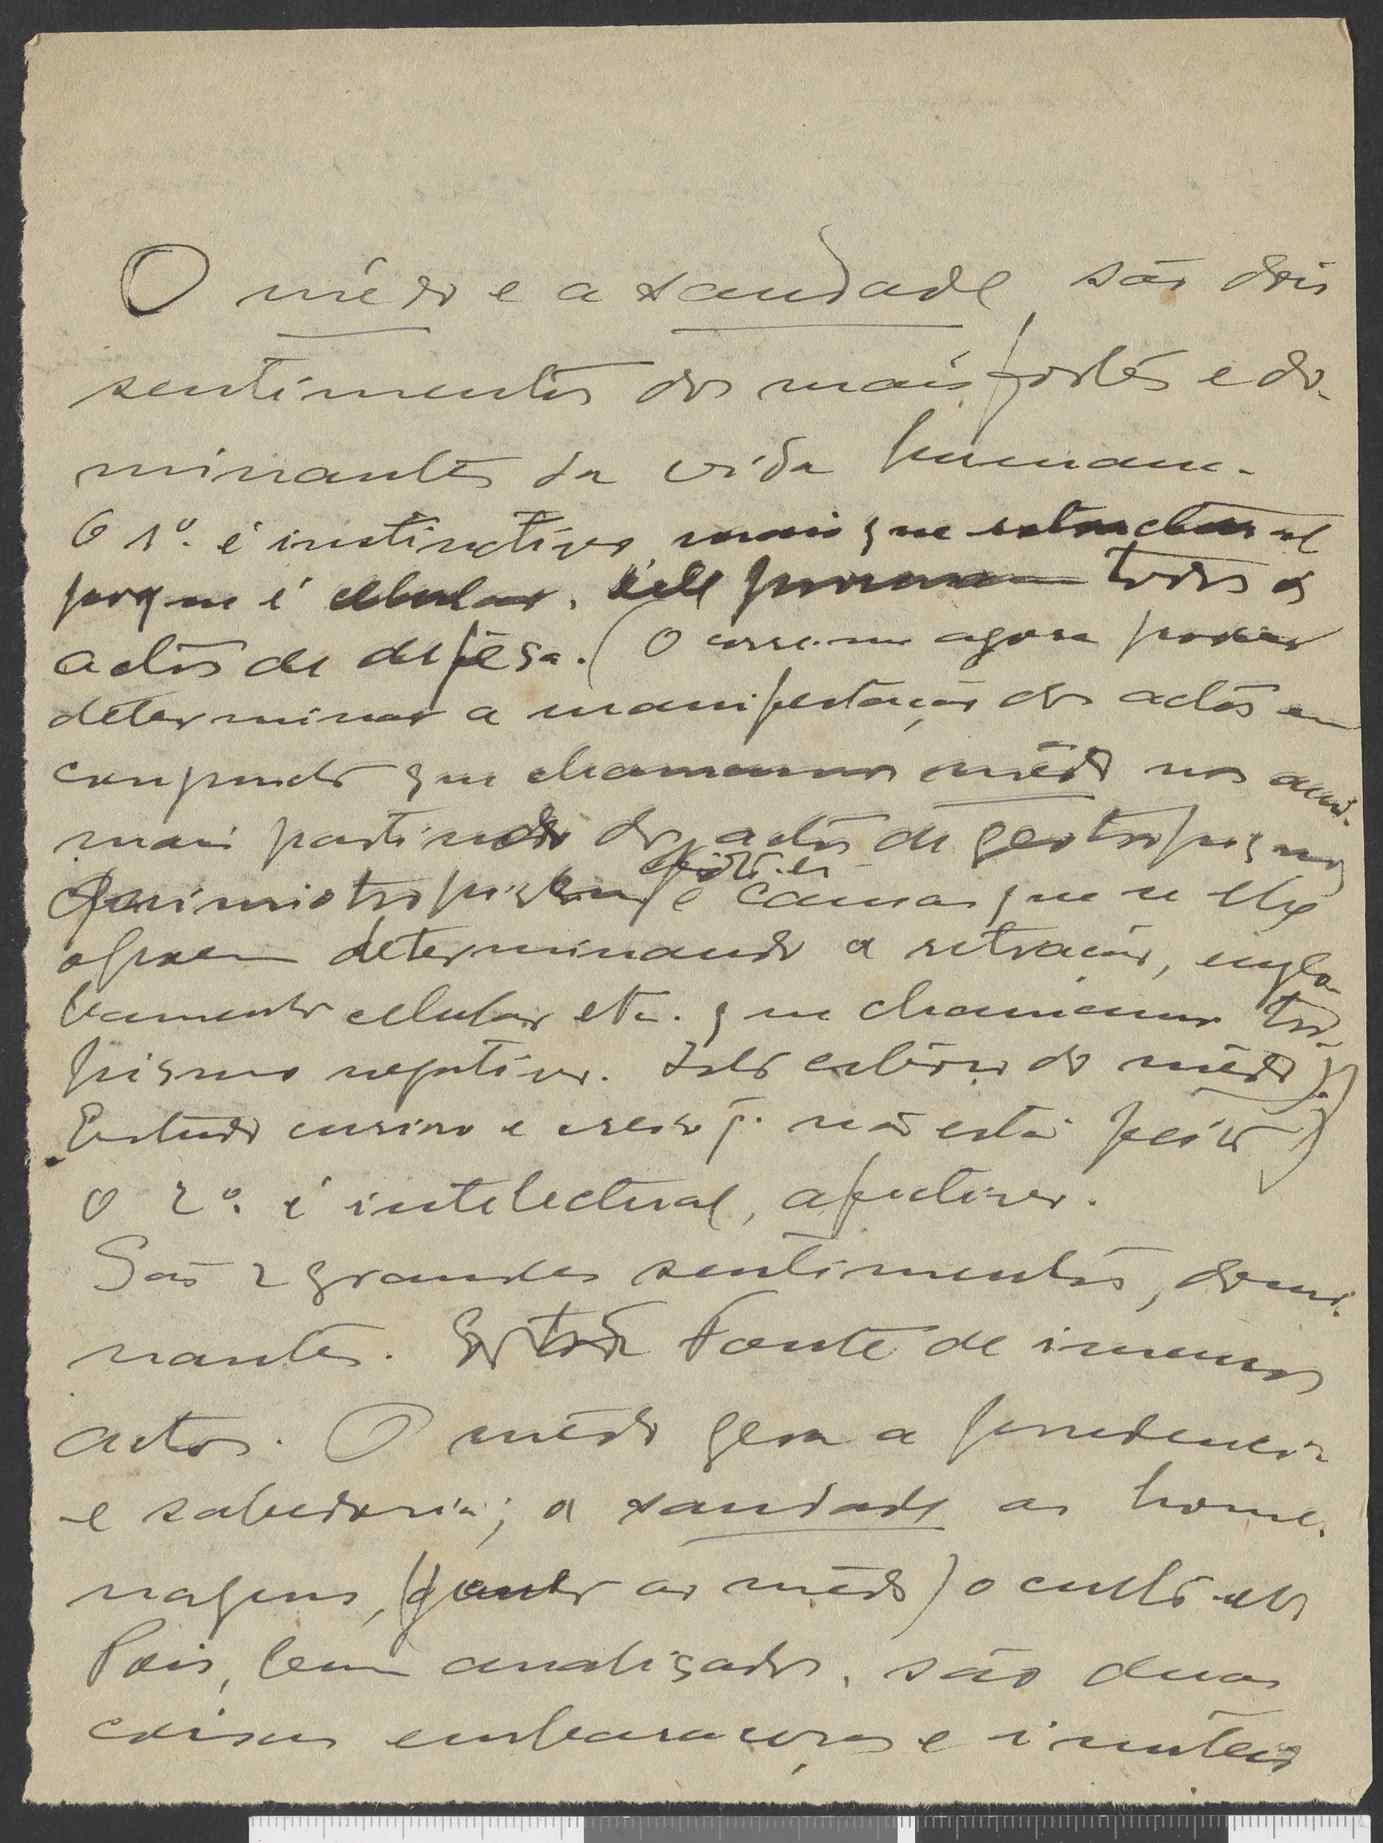 O mêdo e a saudade são dois
sentimentos dos mais fortes e do-
minantes da vida humana.
O 1º. é instinctivo, mais que
porque é celular. todos os
actos de defêsa. (Ocorre-me agora poder
determinar a manifestação dos actos em
conjuncto que chamamos mêdo nos ani-
mais partindo dos actos de geotropismo
quimiotropismo e causas que se lhe
opoem determinando a retração, englo-
bamento celular etc. que chamamos tro-
pismo negativo. do mêdo).
Estudo curioso e creio q. não está feito)
O 2º. é intelectual, afectivo.
São 2 grandes sentimentos, domi-
nantes. Fonte de imensos
actos. O mêdo gera a prudencia
e sabedoria; a saudade as home-
nagens, (junto ao mêdo) o culto etc
Pois, bem analisados, são duas
coisas embaraçosas e inuteis